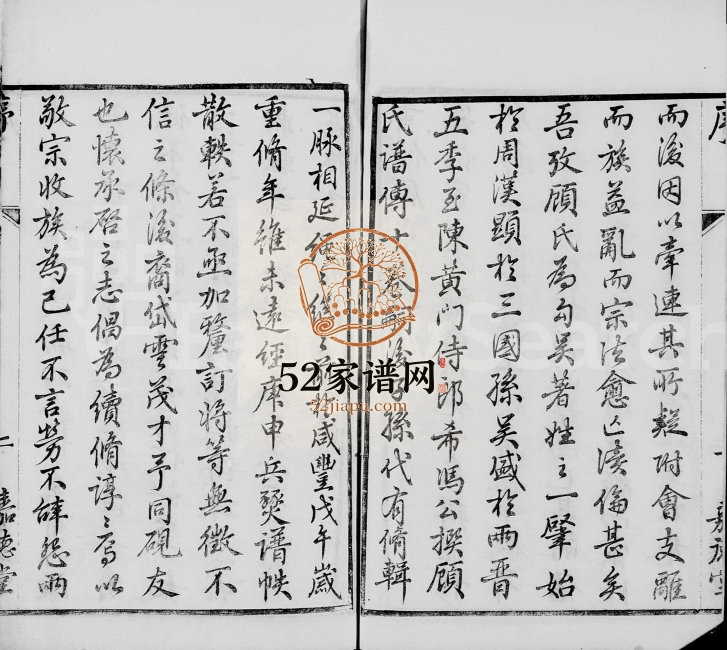 序
而後因以牽連其所疑附會支離
而族益亂而宗法愈亡瀆倫甚矣
吾攷顧氏為勾吳著姓之一肇始
於周漢顯於三國孫吳盛於兩晋
五季至陳黃門侍郎希馮公撰顧
氏譜傳十卷 後子孫代有脩輯
一脉相延 咸豐戊午歲
重脩年雖未遠經庚申兵燹譜帙
散軼若不亟加釐訂將等無徵不
信之條後裔岱雲茂才予同硯友
也懷承啓之志偶為續脩諄諄焉以
敬宗收族為己任不言勞不辭怨兩
二
嘉德堂
52家谱网
52jiapu.com